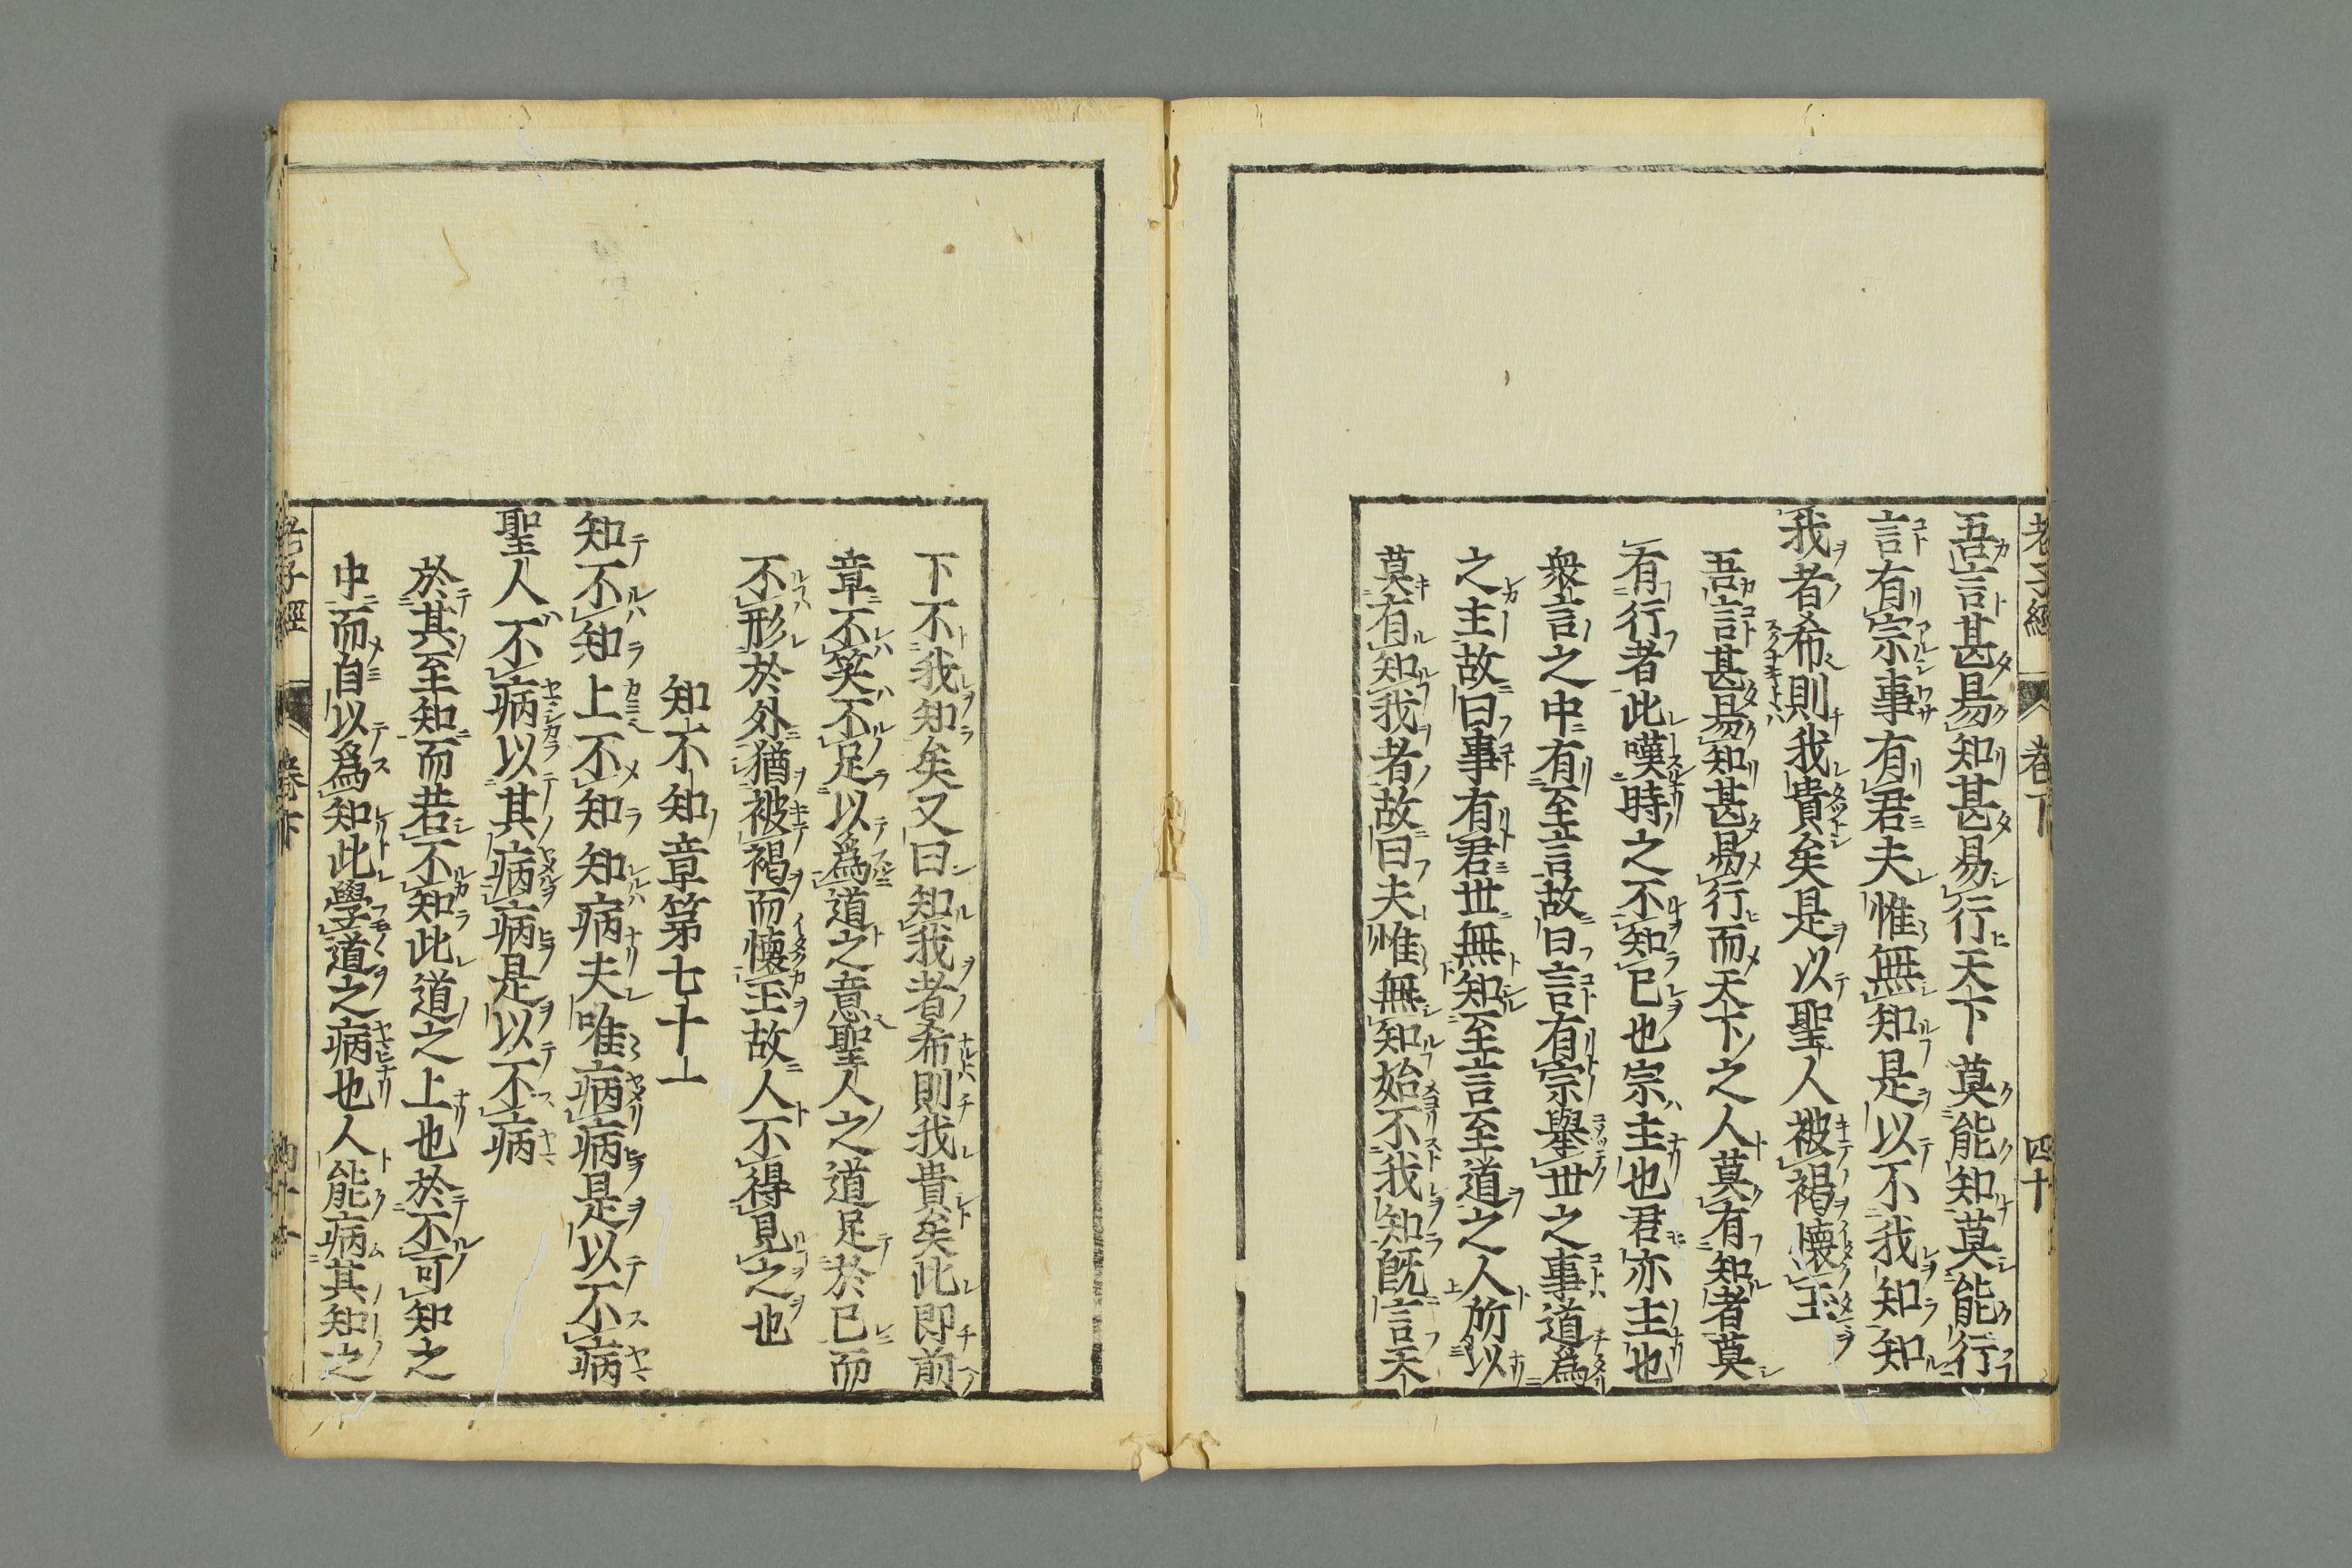 老子經 卷下 四十
吾言甚易知甚易行天下莫能知莫能行
言有宗事有君夫惟無知是以不我知知
我者希則我貴矣是以聖人被褐懷玉
吾言甚易知甚易行而天下之人莫有知者莫
有行者此嘆時之不知已也宗主也君亦主也
衆言之中有至言故曰言有宗舉世之事道爲
之主故曰事有君世無知至言至道之人所以
莫有知我者故曰夫惟無知始不我知旣言天
下不我知矣又曰知我者希則我貴矣此即前
章不笑不足以爲道之意聖人之道足於已而
不形於外猶被褐而懷玉故人不得見之也
知不知章第七十一
知不知上不知知病夫唯病病是以不病
聖人不病以其病病是以不病
於其至知而若不知此道之上也於不可知之
中而自以爲知此學道之病也人能病其知之
老子經 卷下